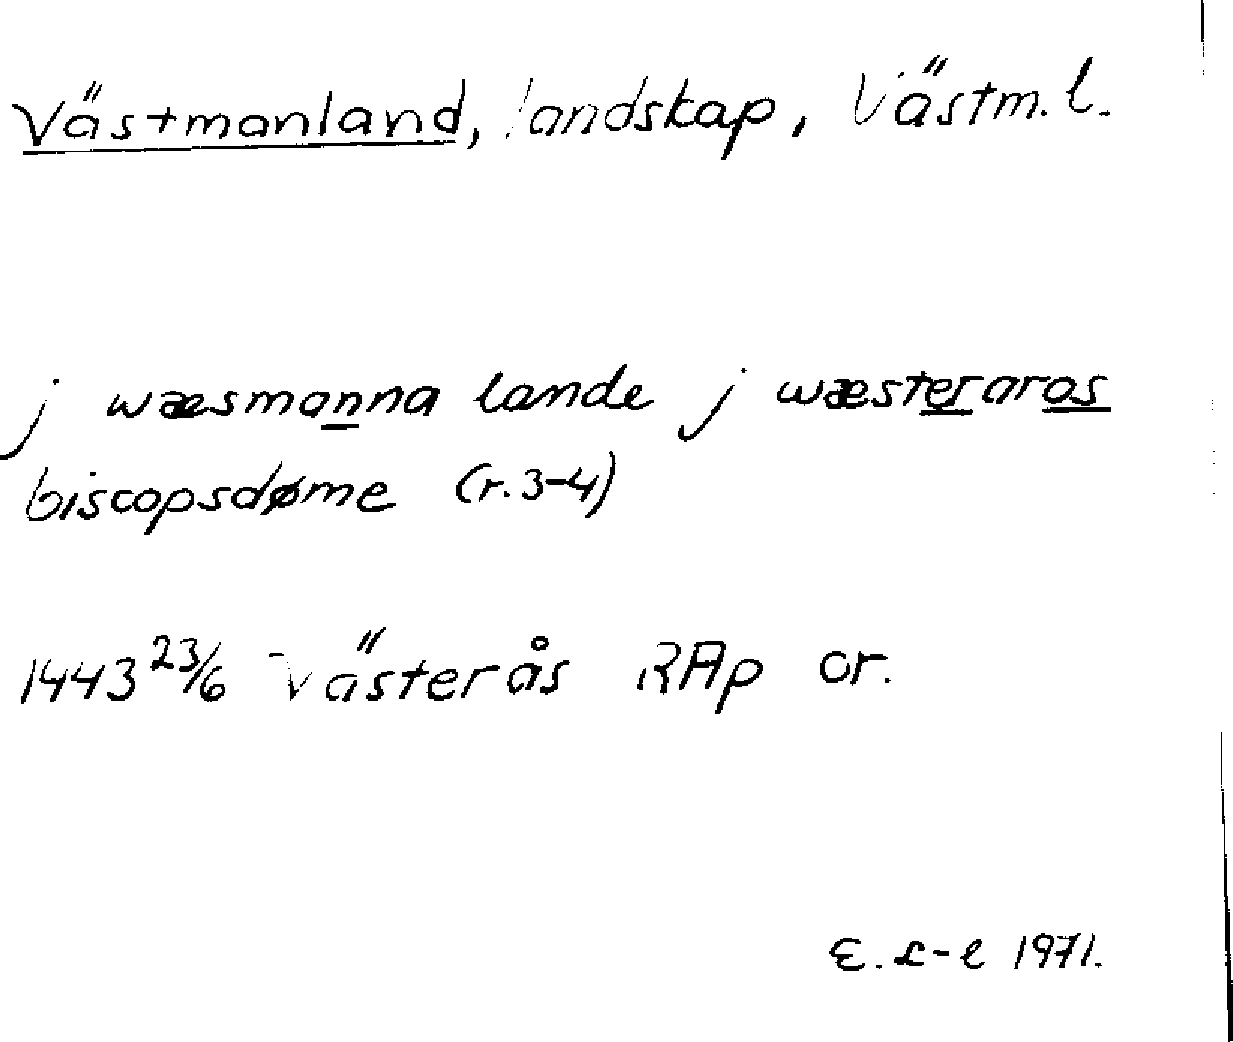 Västmanland, landskap, Västm. l.
j wæsmanna lande j wæsteraros
biscopsdøme (r. 3-4)
1443 23/6 Västerås RAp or.
E. L-l 1971.